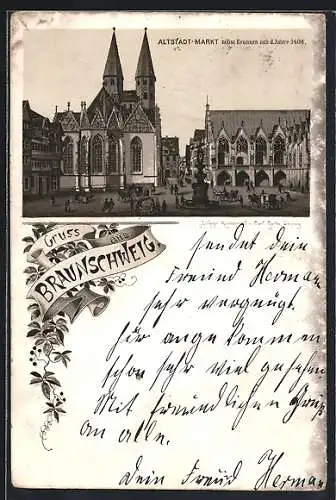 ALTSTADT-MARKT nebst Brunnen mit d. Jahre 1408.
Gruss
aus
BRAUNSCHWEIG.
sendet dein
Freund Herman
sehr vergnügt.
für ange kommen
schon sehr viel gesehen
Mit freundlichen Gruß
an alle.
Dein Freud Herman